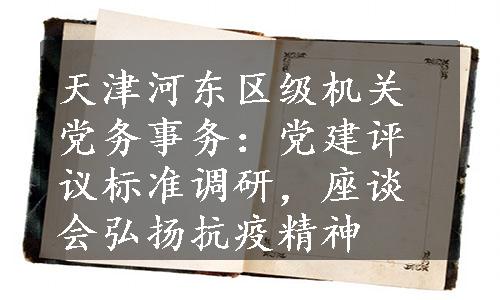 天津河东区级机关
党务事务：党建评
议标准调研，座谈
会弘扬抗疫精神